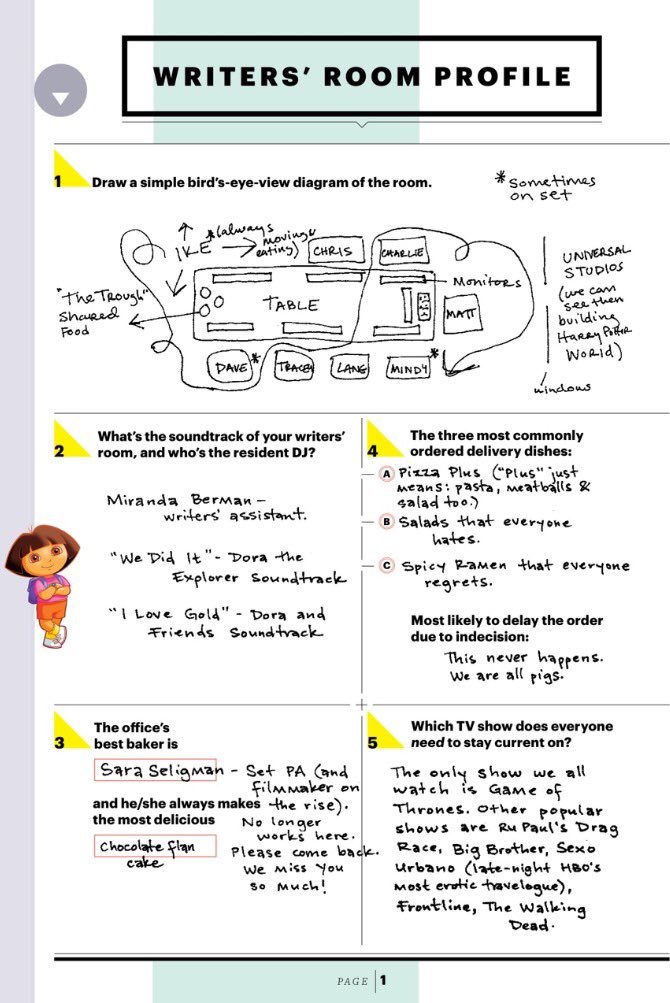 WRITERS' ROOM PROFILE
1
Draw a simple bird's-eye-view diagram of the room.
*Sometimes
on set
IKE
*(always
moving &
eating)
CHRIS
CHARLIE
"The Trough"
Shared
Food
TABLE
Monitors
MATT
UNIVERSAL
STUDIOS
(we can
see them
building
Harry Potter
World)
windows
DAVE*
TRACEY
LANG
MINDY*
2
What's the soundtrack of your writers'
room, and who's the resident DJ?
Miranda Berman –
writers' assistant.
"We Did It" - Dora the
Explorer Soundtrack
"I Love Gold" - Dora and
Friends Soundtrack
4
The three most commonly
ordered delivery dishes:
A Pizza Plus ("Plus" just
means: pasta, meatballs &
salad too.)
B Salads that everyone
hates.
C Spicy Ramen that everyone
regrets.
Most likely to delay the order
due to indecision:
This never happens.
We are all pigs.
3
The office's
best baker is
Sara Seligman – Set PA (and
filmmaker on
the rise).
and he/she always makes
the most delicious
No longer
works here.
Chocolate flan
cake
Please come back.
We miss you
so much!
5
Which TV show does everyone
need to stay current on?
The only show we all
watch is Game of
Thrones. Other popular
shows are Ru Paul's Drag
Race, Big Brother, Sexo
Urbano (late-night HBO's
most erotic travelogue),
Frontline, The Walking
Dead.
PAGE 1